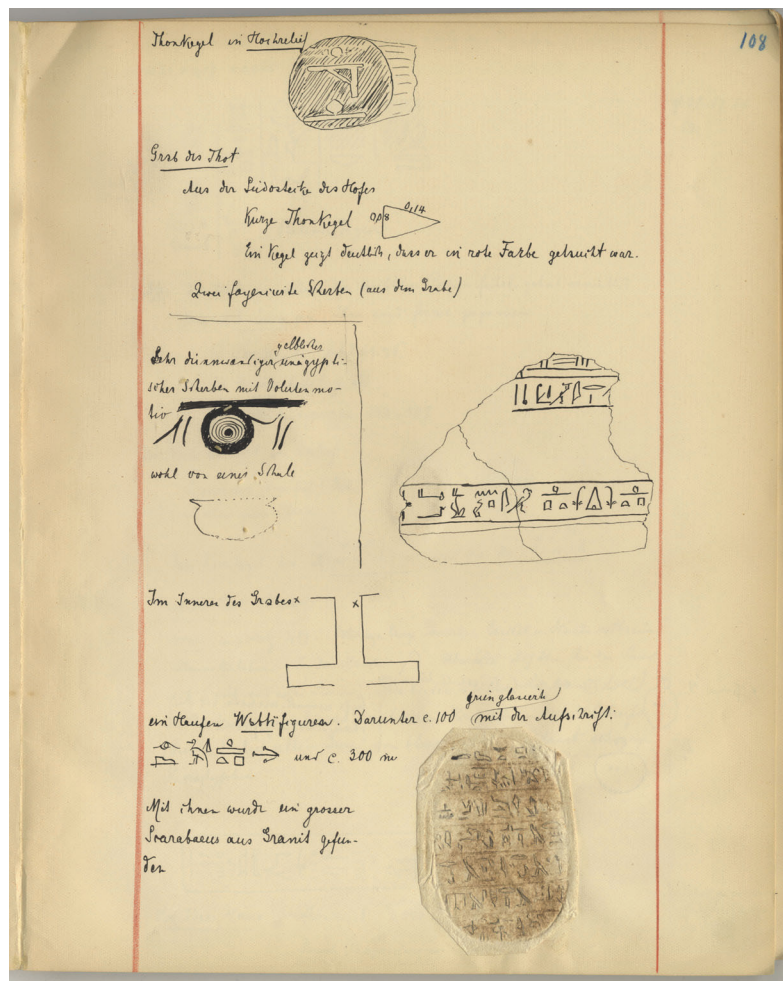 108
Thonkegel in Hochrelief
Grab des Thot
Aus der Südostecke des Hofes
Kurze Thonkegel 0,08 0,14
Ein Kegel zeigt deutlich, dass er in rote Farbe getaucht war.
Zwei fayencierte Scherben (aus dem Grabe)
gelblicher
Sehr dünnwandiger unägypti-
scher Scherben mit Volutenmo-
tiv
wohl von einer Schale
Im Inneren des Grabes x
x
grün glasierte
ein Haufen Uschebtifiguren. Darunter c. 100 mit der Aufschrift:
und c. 300 m
Mit ihnen wurde ein grosser
Scarabaeus aus Granit gefun-
den